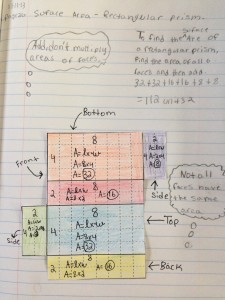 Surface Area - Rectangular prism
Add, don't multiply
areas of faces.
To find the surface Are of
a rectangular prism,
find the area of all 6
faces and then add
32+32+16+16+8+8
=112 units2
Bottom
8
2
4
A=lxw
A=8x4
A=32
4
A=lxw
A=8
Front
8
2
A=lxw
A=8x2
A=16
Side
Not all
faces have
the same
area
2
8
4
A=lxw
A=8x4
A=32
4
A=lxw
Top
Side
8
2
A=lxw
A=8x2
A=16
Back